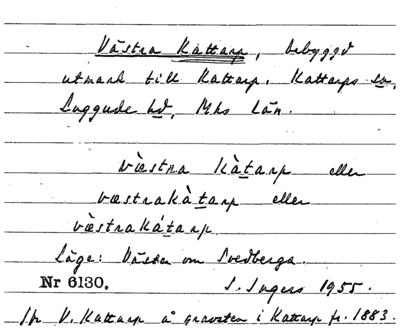 Västra Kattarp, bebyggd
utmark till Kattarp. Kattarps sn,
Luggude hd, Mhs län.
væ̀stra kà̱tarp eller
væstrakà̱tarp eller
væ̀straká̱tarp.
Läge: Väster om Svedberga.
Nr 6130.
S. Ingers 1955.
Ifr V. Kattarp å gravsten i Kattarp fr. 1883.